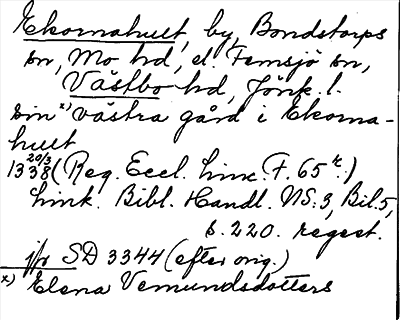 Ekornahult, by, Bondstorps
sn, Mo hd, el. Femsjö sn,
Västbo hd, Jönk. l.
sin x) västra gård i Ekorna-
hult
1338 20/3 (Reg. Eccl. Linc. F. 65 r.)
Link. Bibl. Handl. NS:3, Bil. 5,
s. 220. regest.
jfr SD 3344 (efter orig.)
x) Elena Vemundsdotters